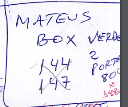 MATEUS
BOX VERDE
144 2
147 PORTA
80